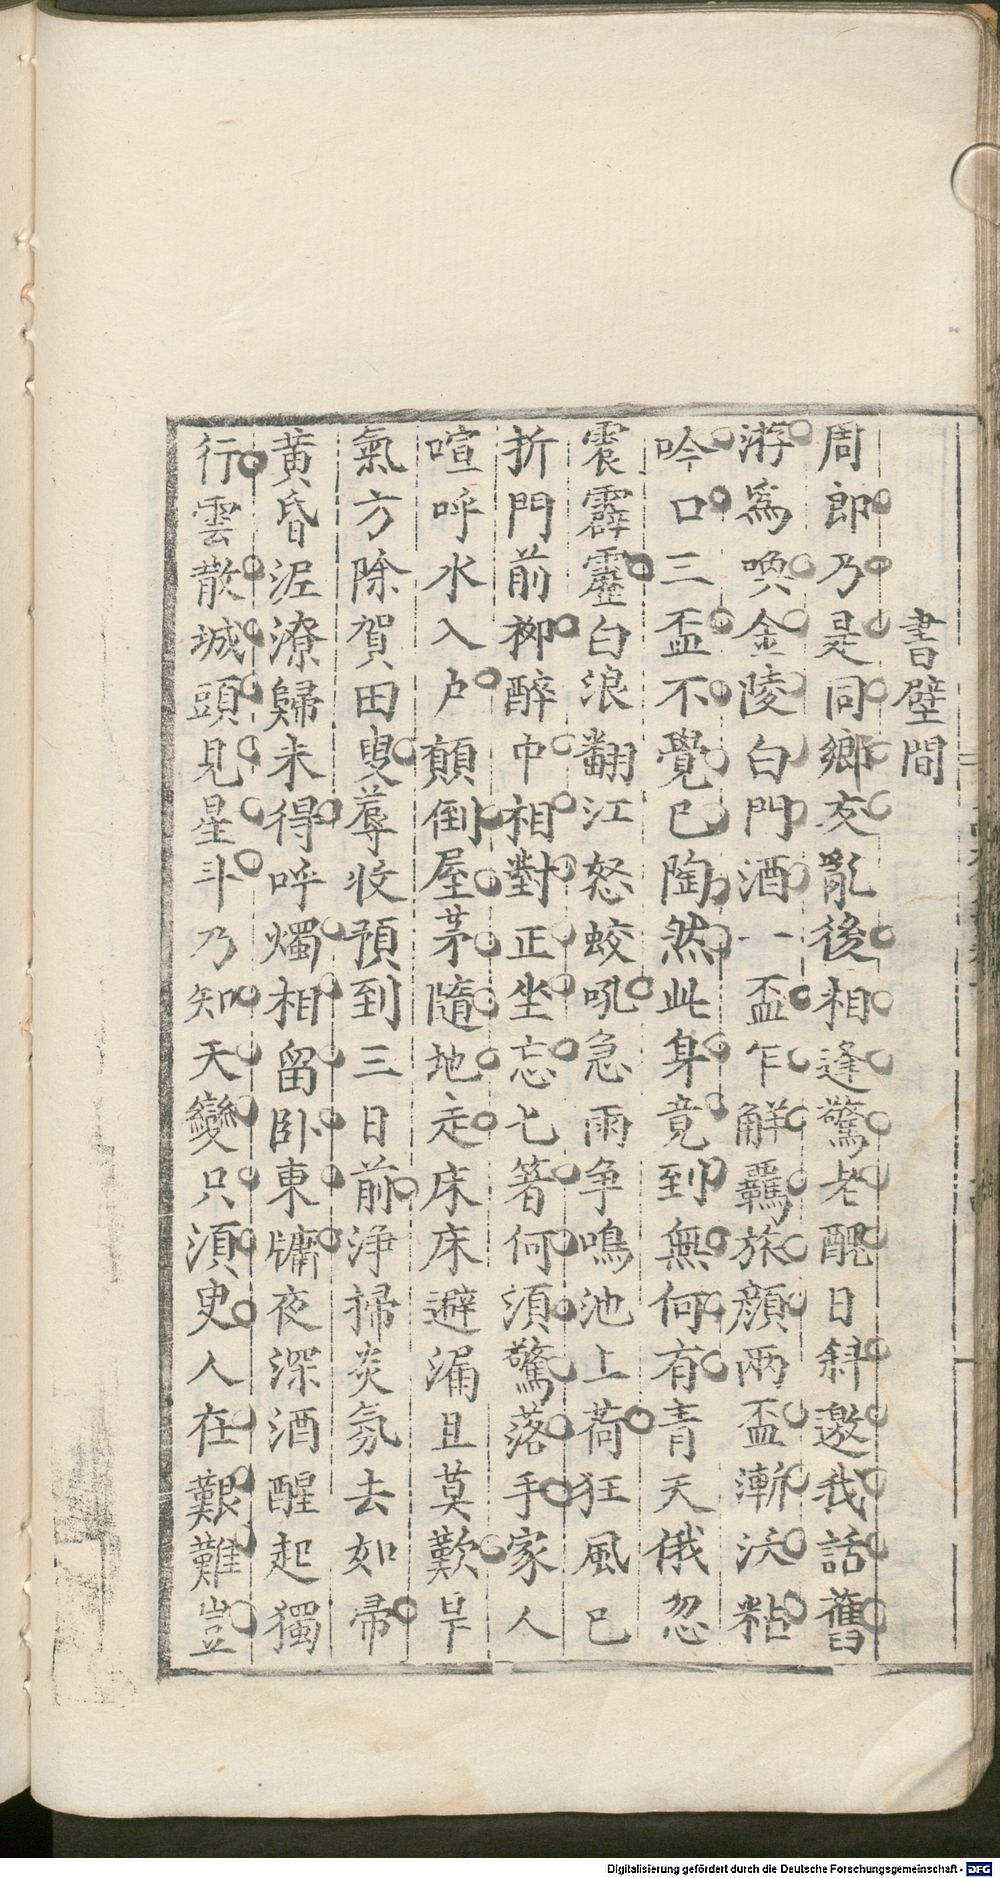 書壁間
周郎乃是同鄉友亂後相逢驚老醜日斜邀我話舊
游爲喚金陵白門酒一盃乍解羈旅顏兩盃漸沃粘
吟口三盃不覺已陶然此身竟到無何有青天俄忽
震霹靂白浪翻江怒蛟吼急雨争鳴池上荷狂風已
折門前栁醉中相對正坐忘匕箸何須驚落手家人
喧呼水入户顛倒屋茅隨地走床床避漏且莫歎旱
氣方除賀田叟蓐收預到三日前淨掃炎氛去如帚
黄昏泥潦歸未得呼燭相留卧東牗夜深酒醒起獨
行雲散城頭見星斗乃知天變只須臾人在艱難豈
Digitalisierung gefördert durch die Deutsche Forschungsgemeinschaft - DFG